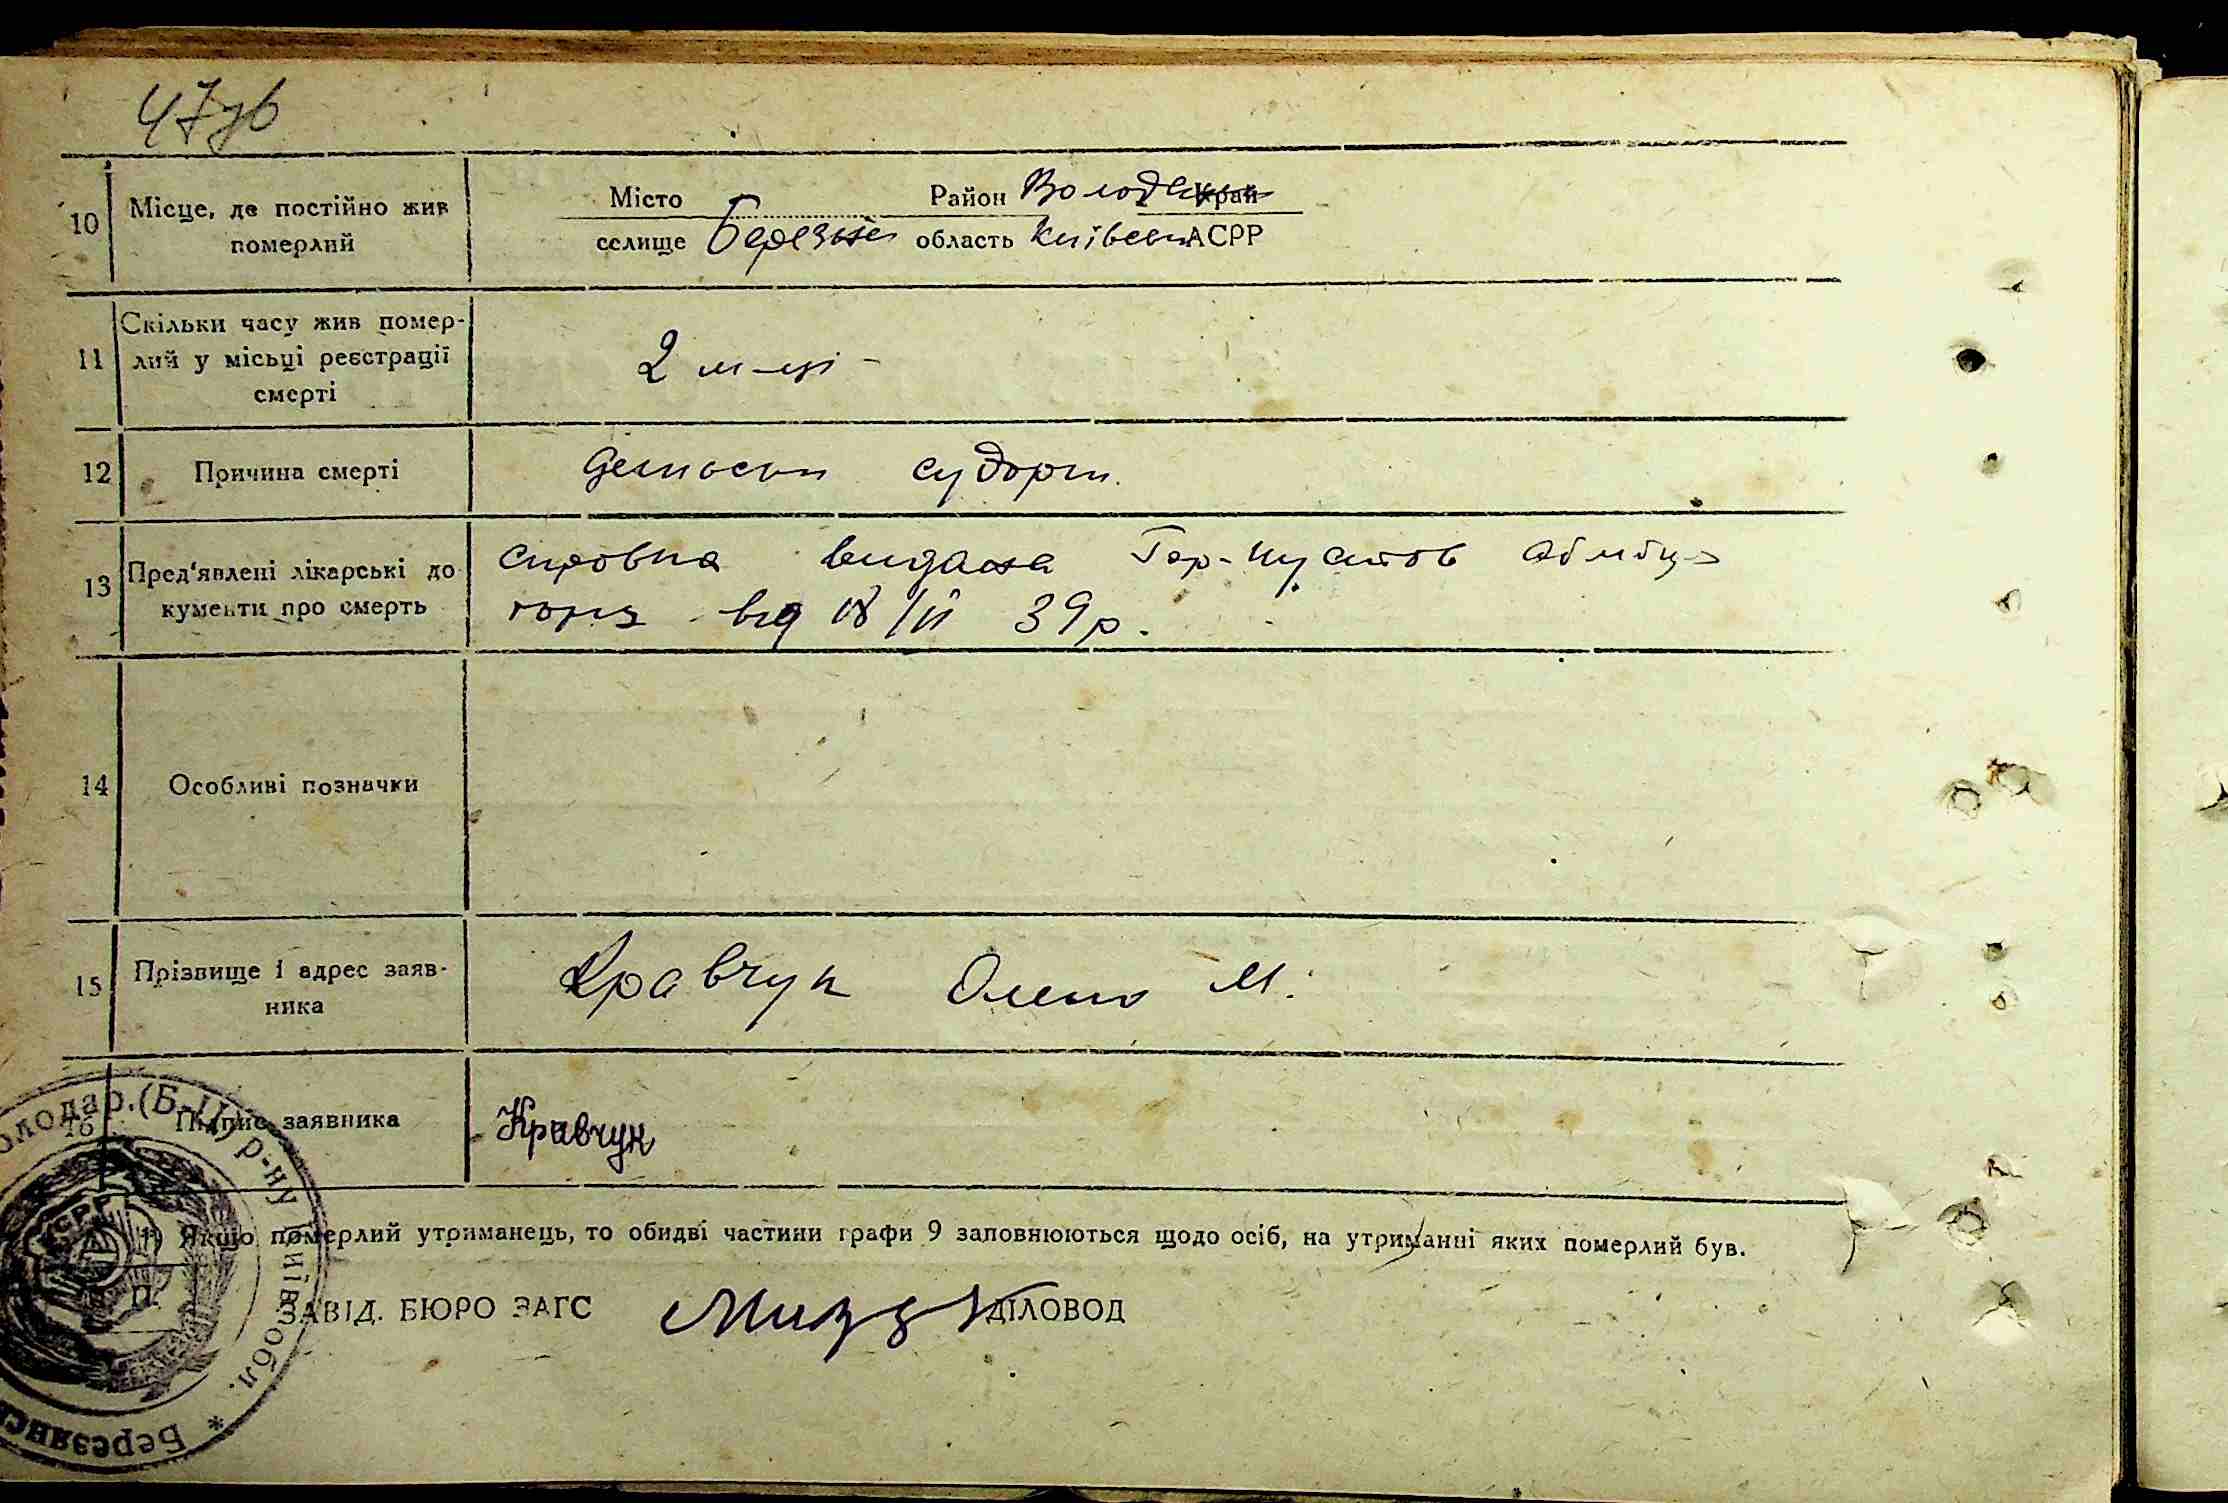 47зв
10 Місце, де постійно жив померлий
Місто Район Володар Край
селище Березна область Київськ АСРР
11 Скільки часу жив помер-
лий у місьці реєстрації
смерті
2 м-ці -
12 Причина смерті
судорги.
13 Пред'явлені лікарські до
кументи про смерть
справка видана Гор-Пустов Амбуля
торія від 18/II 39р.
14 Особливі позначки
15 Прізвище і адрес заяв-
ника
Кравчук Олена М.
16 Підпис заявника
Кравчук
1) Якщо померлий утриманець, то обидві частини графи 9 заповнюються щодо осіб, на утриманні яких померлий був.
М. П.
ЗАВІД. БЮРО ЗАГС ДІЛОВОД
олодар.(Б-Ц) р-ну Київ. обл. * Березянсь
УСРР